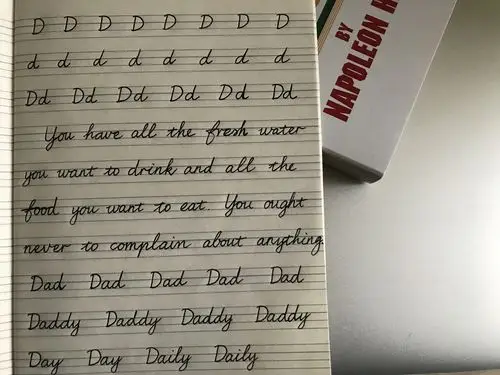 D D D D D D D D
d d d d d d d d
Dd Dd Dd Dd Dd Dd
You have all the fresh water
you want to drink and all the
food you want to eat. You ought
never to complain about anything.
Dad Dad Dad Dad Dad
Daddy Daddy Daddy Daddy
Day Day Daily Daily
BY
NAPOLEON